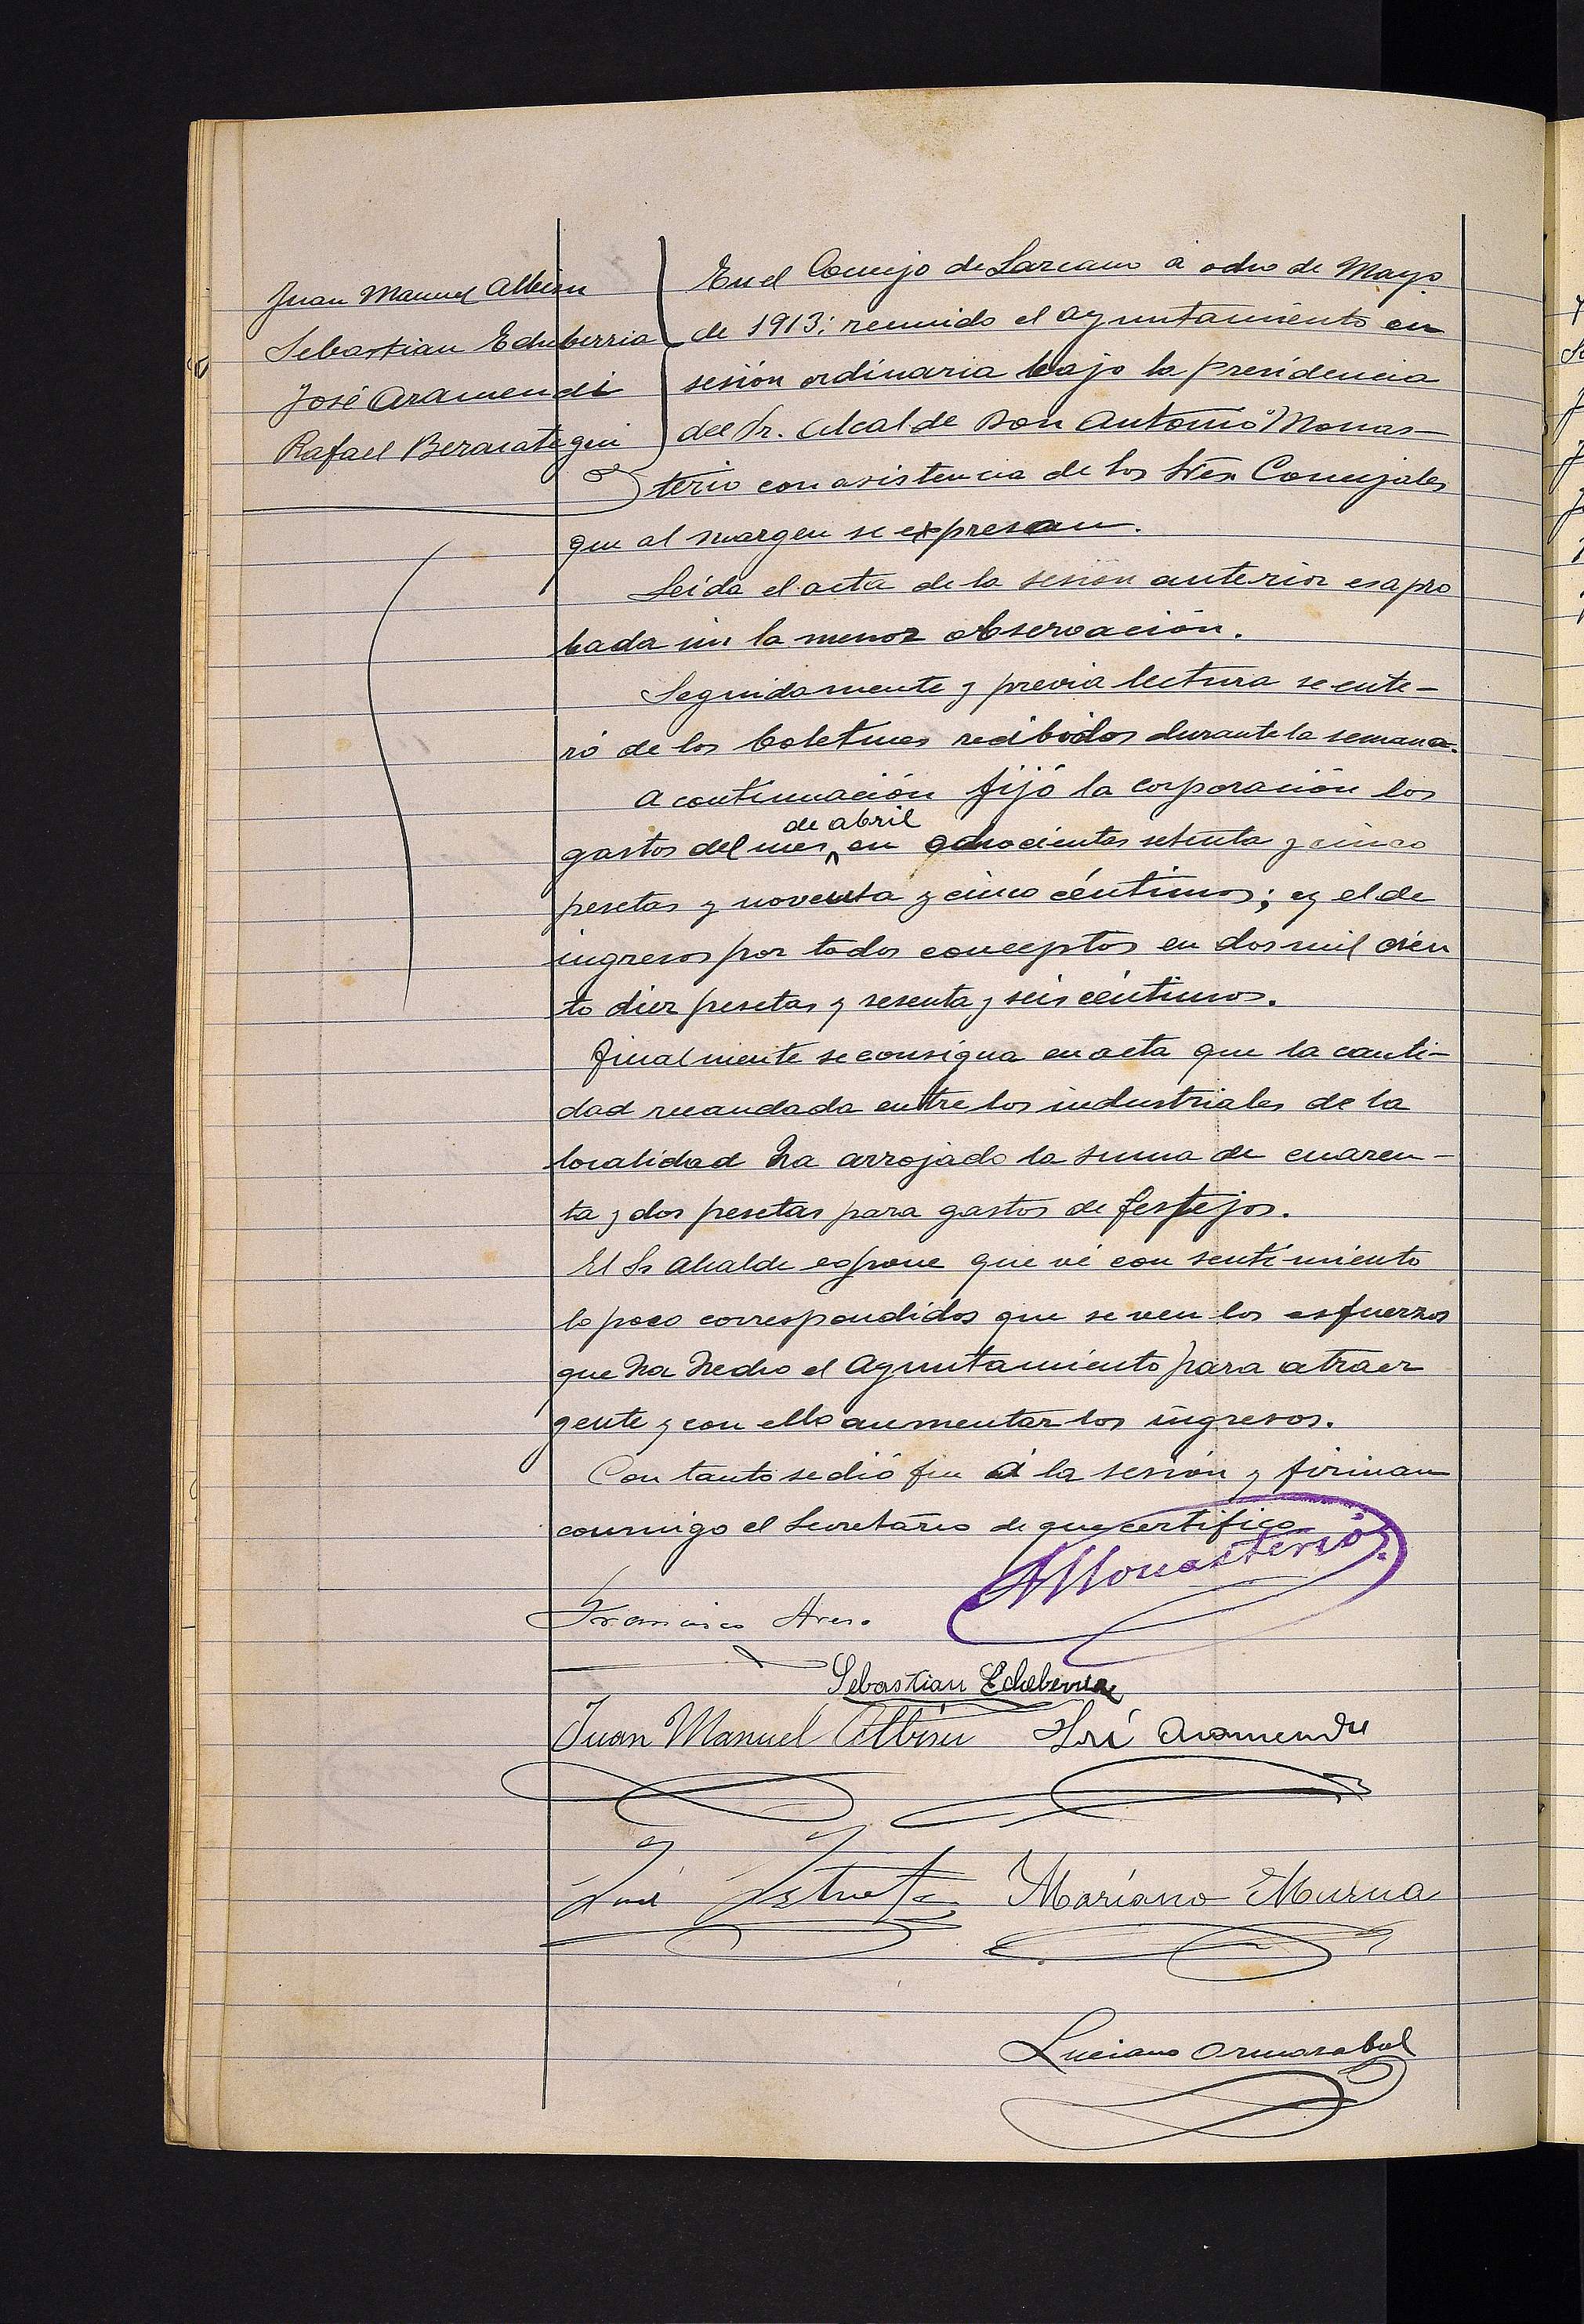 Juan Manuel Albisu
Sebastian Echeberria
José Aramendi
Rafael Berasategui
En el Concejo de Lazcano á ocho de Mayo
de 1913; reunido el Ayuntamiento en
sesión ordinaria bajo la presidencia
del Sr. Alcalde Don Antonio Monas-
terio con asistencia de los Sres Concejales
que al margen se expresan.
Leída el acta de la sesión anterior es apro
bada sin la menor observación.
Seguidamente y previa lectura se ente-
ró de los boletines recibidos durante la semana.
A continuación fijó la corporación los
de abril
gastos del mes en ochocientas setenta y cinco
pesetas y noventa y cinco céntimos; y el de
ingresos por todos conceptos en dos mil cien
to diez pesetas y sesenta y seis céntimos.
Finalmente se consigna en acta que la canti-
dad recaudada entre los industriales de la
localidad ha arrojado la suma de cuaren-
ta y dos pesetas para gastos de festejos.
El Sr Alcalde espone que vé con sentimiento
lo poco correspondidos que se ven los esfuerzos
que ha hecho el Ayuntamiento para atraer
gente y con ello aumentar los ingresos.
Con tanto se dió fin á la sesión y firman
conmigo el Secretario de que certifico
AMonasterio
Francisco
Sebastian Echeberria
Juan Manuel Albisu José Aramendi
José
Mariano Murua
Luciano Ormazabal